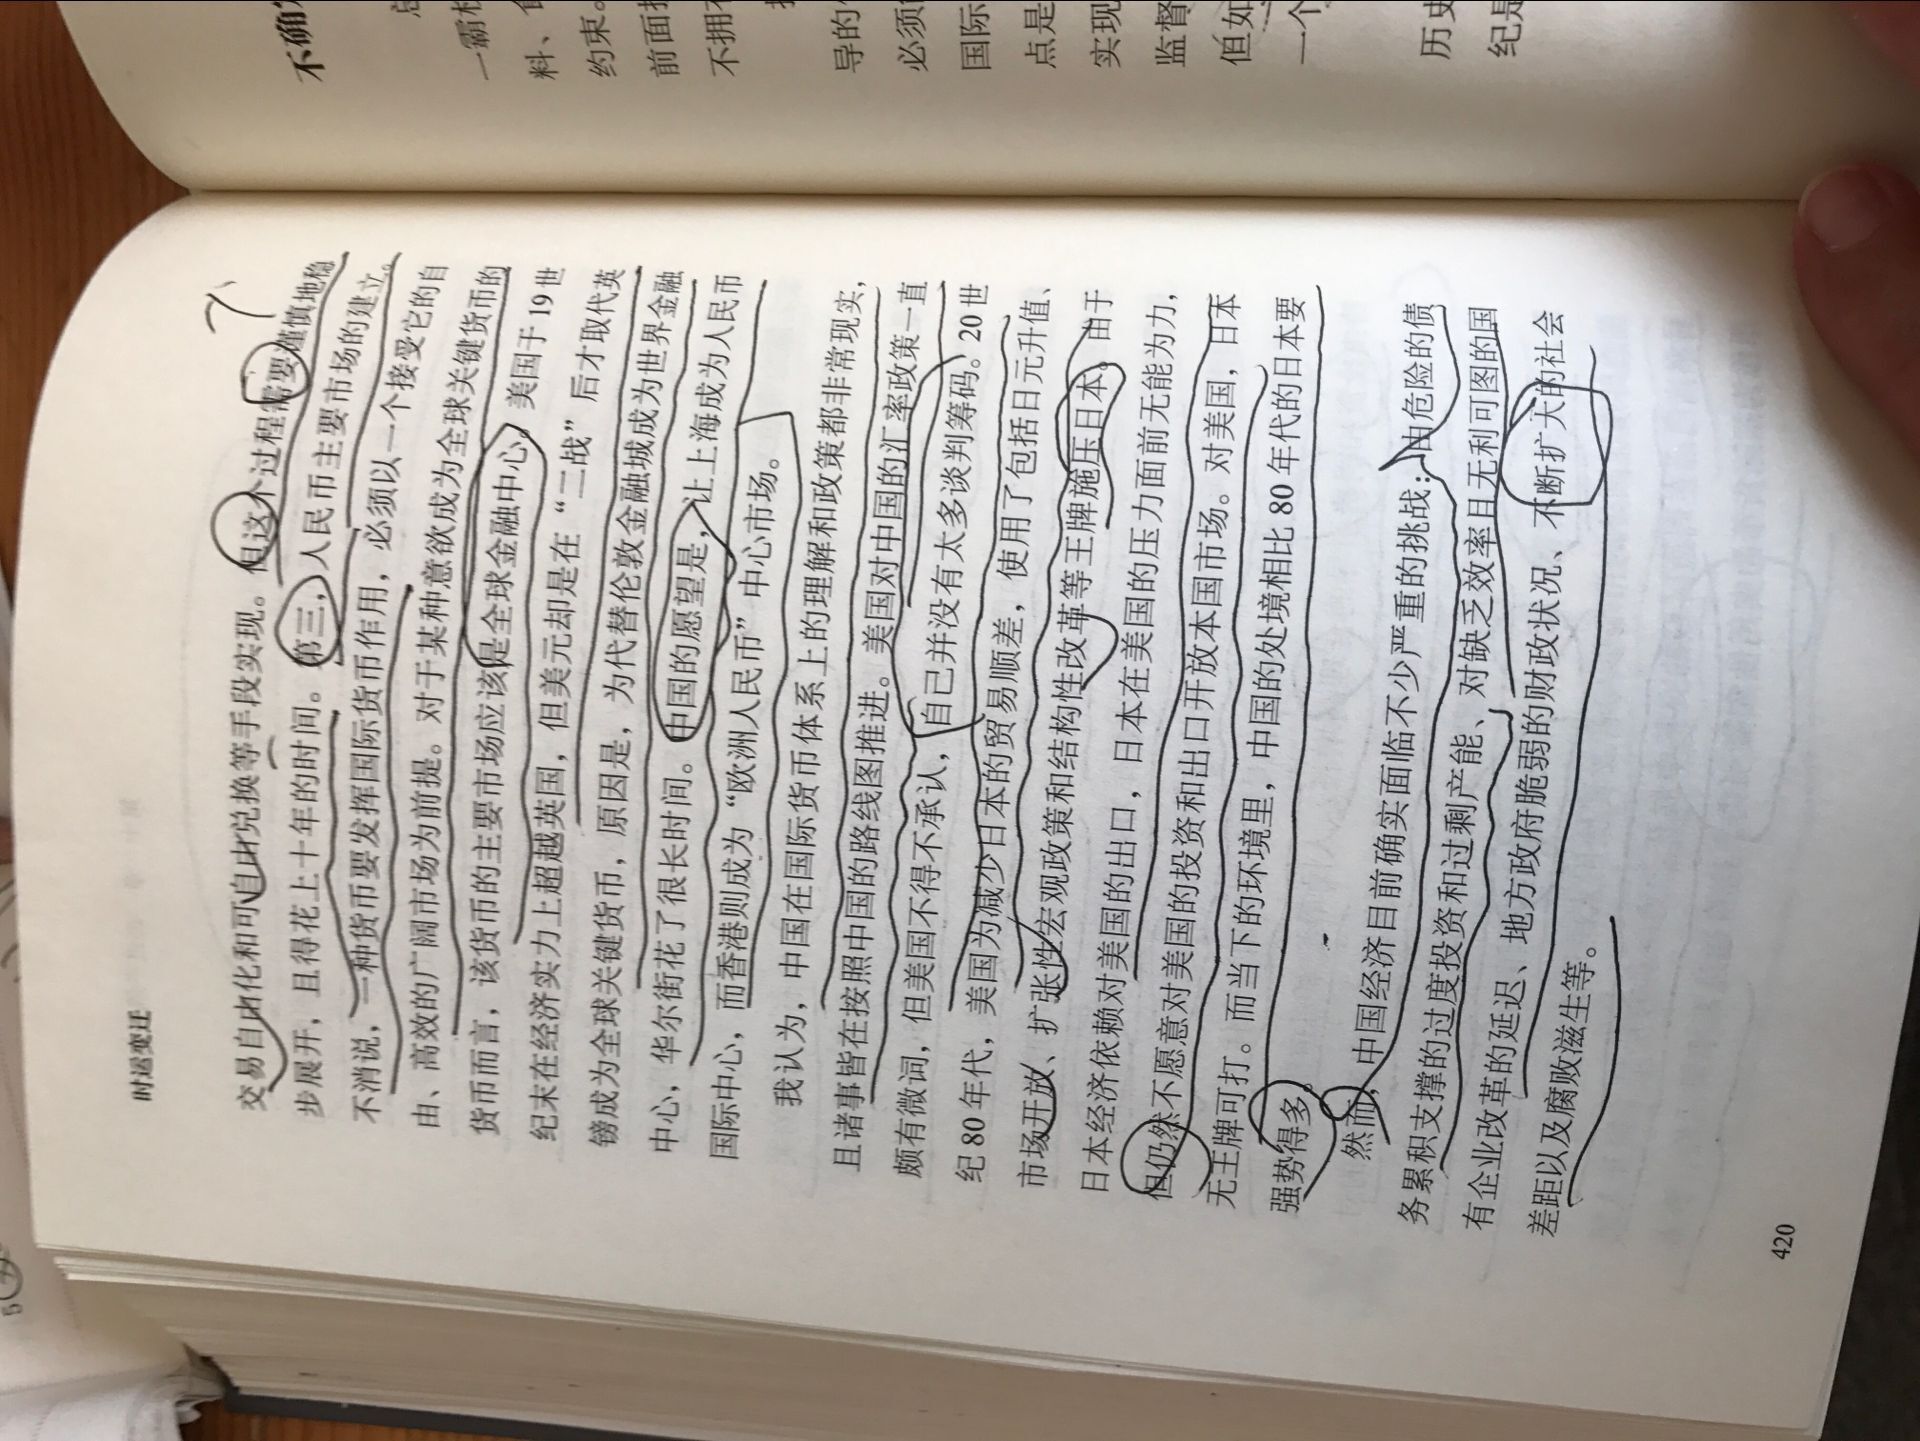 时运变迁
交易自由化和可自由兑换等手段实现。但这个过程需要谨慎地稳
步展开，且得花上十年的时间。第三，人民币主要市场的建立。
不消说，一种货币要发挥国际货币作用，必须以一个接受它的自
由、高效的广阔市场为前提。对于某种意欲成为全球关键货币的
货币而言，该货币的主要市场应该是全球金融中心。美国于19世
纪末在经济实力上超越英国，但美元却是在“二战”后才取代英
镑成为全球关键货币，原因是，为代替伦敦金融城成为世界金融
中心，华尔街花了很长时间。中国的愿望是，让上海成为人民币
国际中心，而香港则成为“欧洲人民币”中心市场。
我认为，中国在国际货币体系上的理解和政策都非常现实，
且诸事皆在按照中国的路线图推进。美国对中国的汇率政策一直
颇有微词，但美国不得不承认，自已并没有太多谈判筹码。20世
纪80年代，美国为减少日本的贸易顺差，使用了包括日元升值、
市场开放、扩张性宏观政策和结构性改革等王牌施压日本。由于
日本经济依赖对美国的出口，日本在美国的压力面前无能为力，
但仍然不愿意对美国的投资和出口开放本国市场。对美国，日本
无王牌可打。而当下的环境里，中国的处境相比80年代的日本要
强势得多。
然而，中国经济目前确实面临不少严重的挑战：由危险的债
务累积支撑的过度投资和过剩产能、对缺乏效率且无利可图的国
有企业改革的延迟、地方政府脆弱的财政状况、不断扩大的社会
差距以及腐败滋生等。
420
不确
一霸
料、
约束。
前面
不拥有
导的
必须
国际
点是
实现
监督
但如
一个
历史
纪是